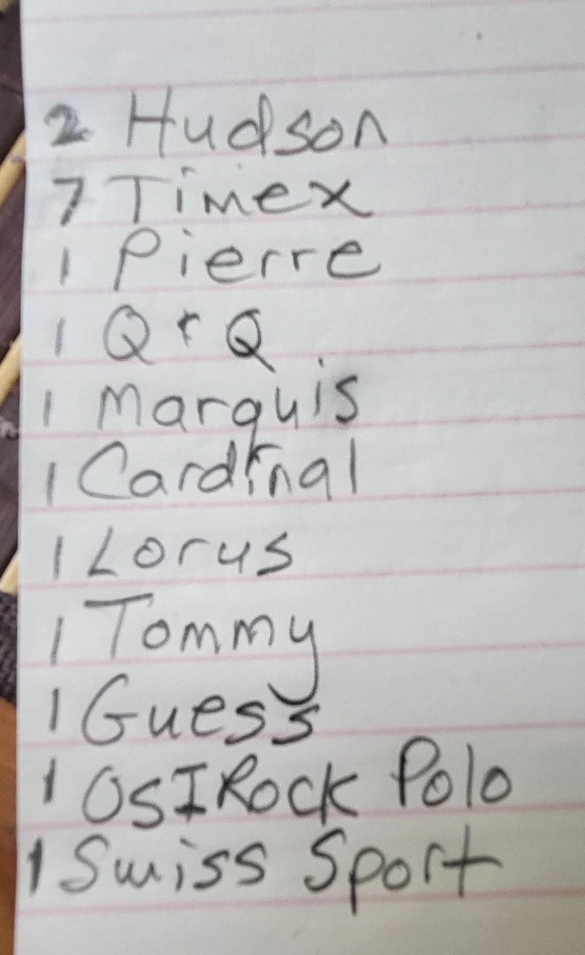 2 Hudson
7 Timex
1 Pierre
1 Q + Q
1 Marquis
1 Cardinal
1 Lorus
1 Tommy
1 Guess
1 OSIRock Polo
1 Swiss Sport